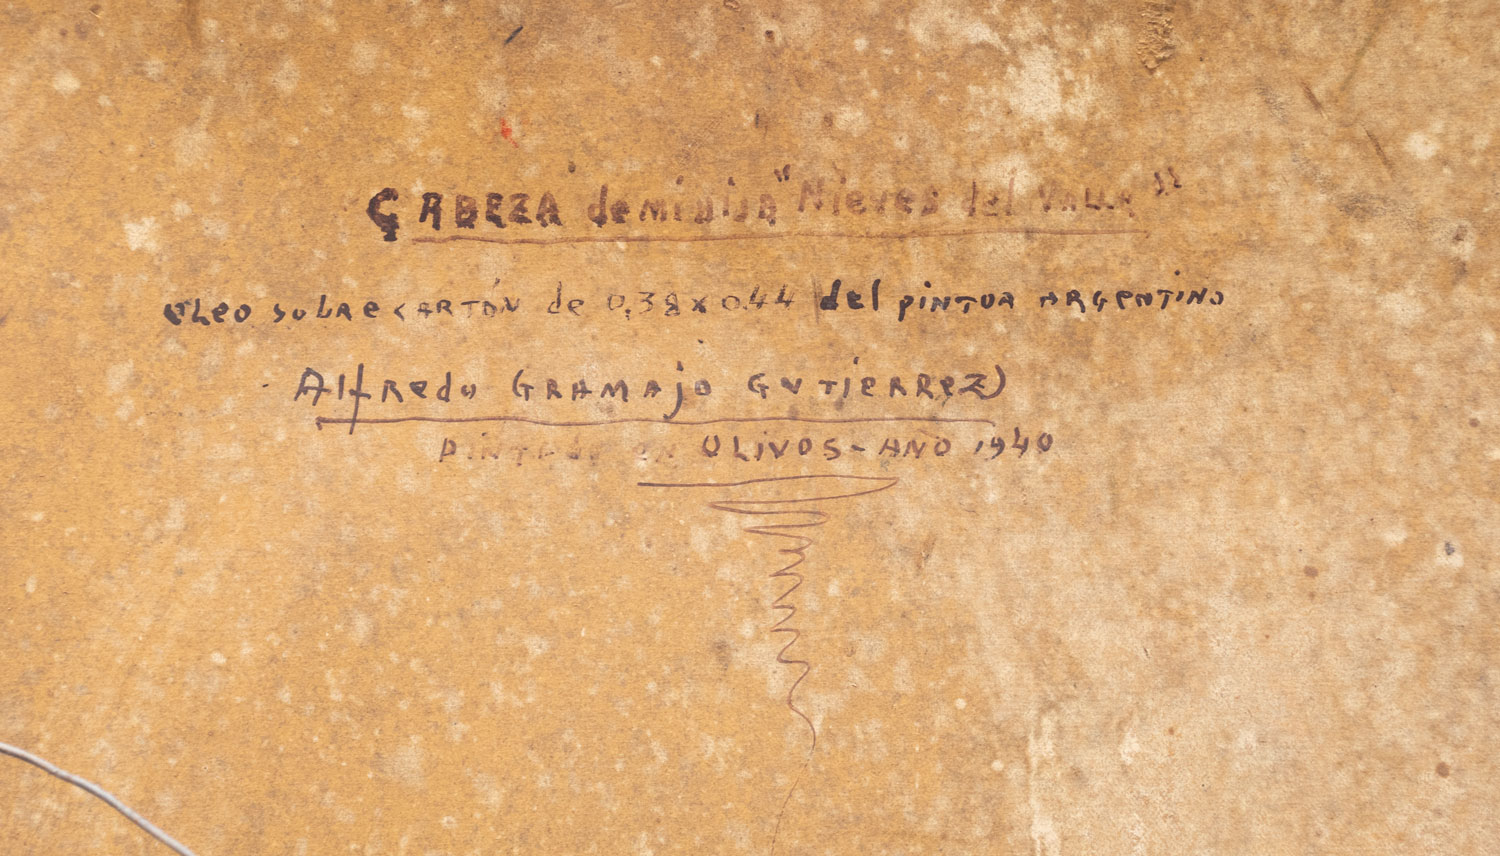 CABEZA de mi hija "Nieves del VALLE"
OLeo sobRe CARTÓN de 0,38 x 0.44 del pintoR ARGENTINO
Alfredo GRAMAjo GUTiERREZ
PiNTADo en OLiVOS - AÑO 1940